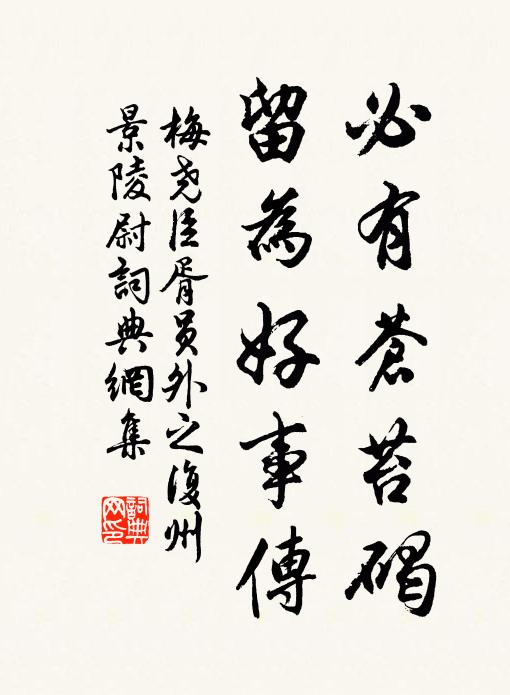 必有蒼苔碣
留為好事傳
梅尧臣胥员外之復州
景陵尉詞典網集
詞典
网印